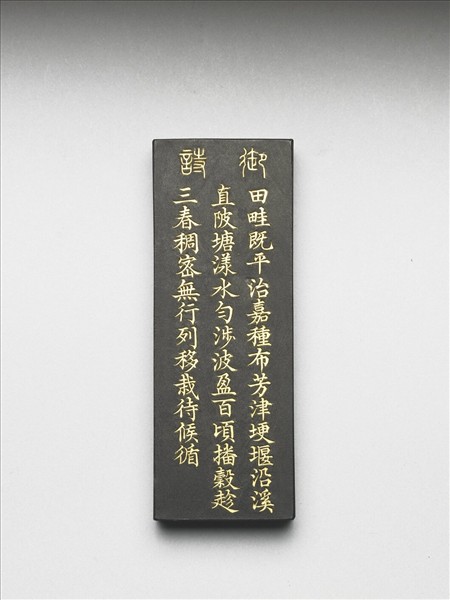 御詩
田畦既平治嘉種布芳津埂堰沿溪
直陂塘漾水勻涉波盈百頃播穀趁
三春稠宻無行列移栽待候循